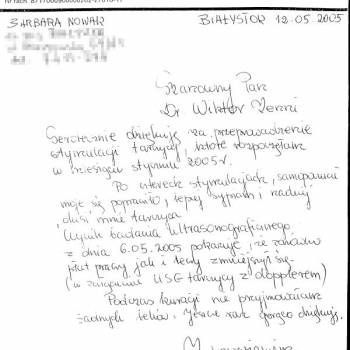 BARBARA NOWAK BIAŁYSTOK 12.05.2005
Szanowny Pan
Dr Wiktor
Serdecznie dziękuję za przeprowadzenie
stymulacji tarczycy, które rozpoczęłam
w miesiącu styczniu 2005 r.
Po czterech stymulacjach, samopoczucie
moje się poprawiło, lepiej sypiam i
dusi mnie tarczyca
Wynik badania Ultrasonograficznego
z dnia 6.05.2005 pokazuje, że zarówno
płat prawy, jak i lewy zmniejszył się
(w załączeniu USG tarczycy z dopplerem)
Podczas kuracji nie przyjmowałam
żadnych leków. Jeszcze raz gorąco dziękuję.